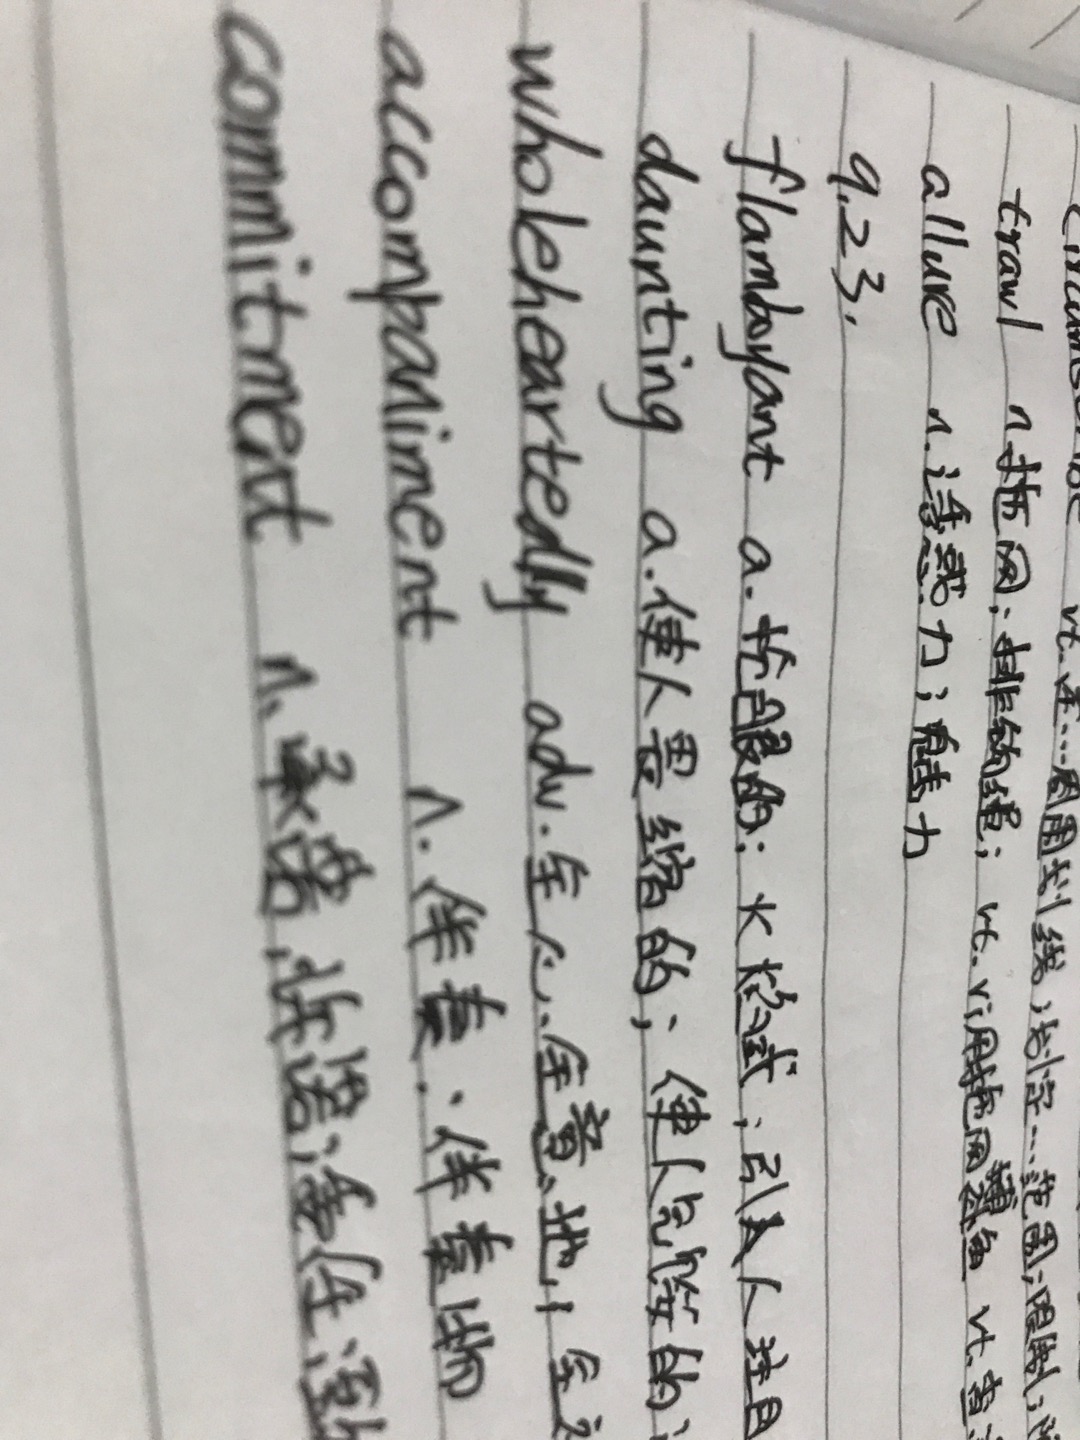 vt. 在…周围划线；划定…范围；限制；
trawl n.拖网；排钩绳；vt.vi用拖网捕鱼 vt.查
allure n.诱惑力；魅力
9.23.
flamboyant a.炫耀的；火焰式；引人注目
daunting a.使人畏缩的；使人气馁的；
wholeheartedly adv.全心全意地；全
accompaniment n.伴奏；伴奏物
commitment n.承诺，许诺；委任，